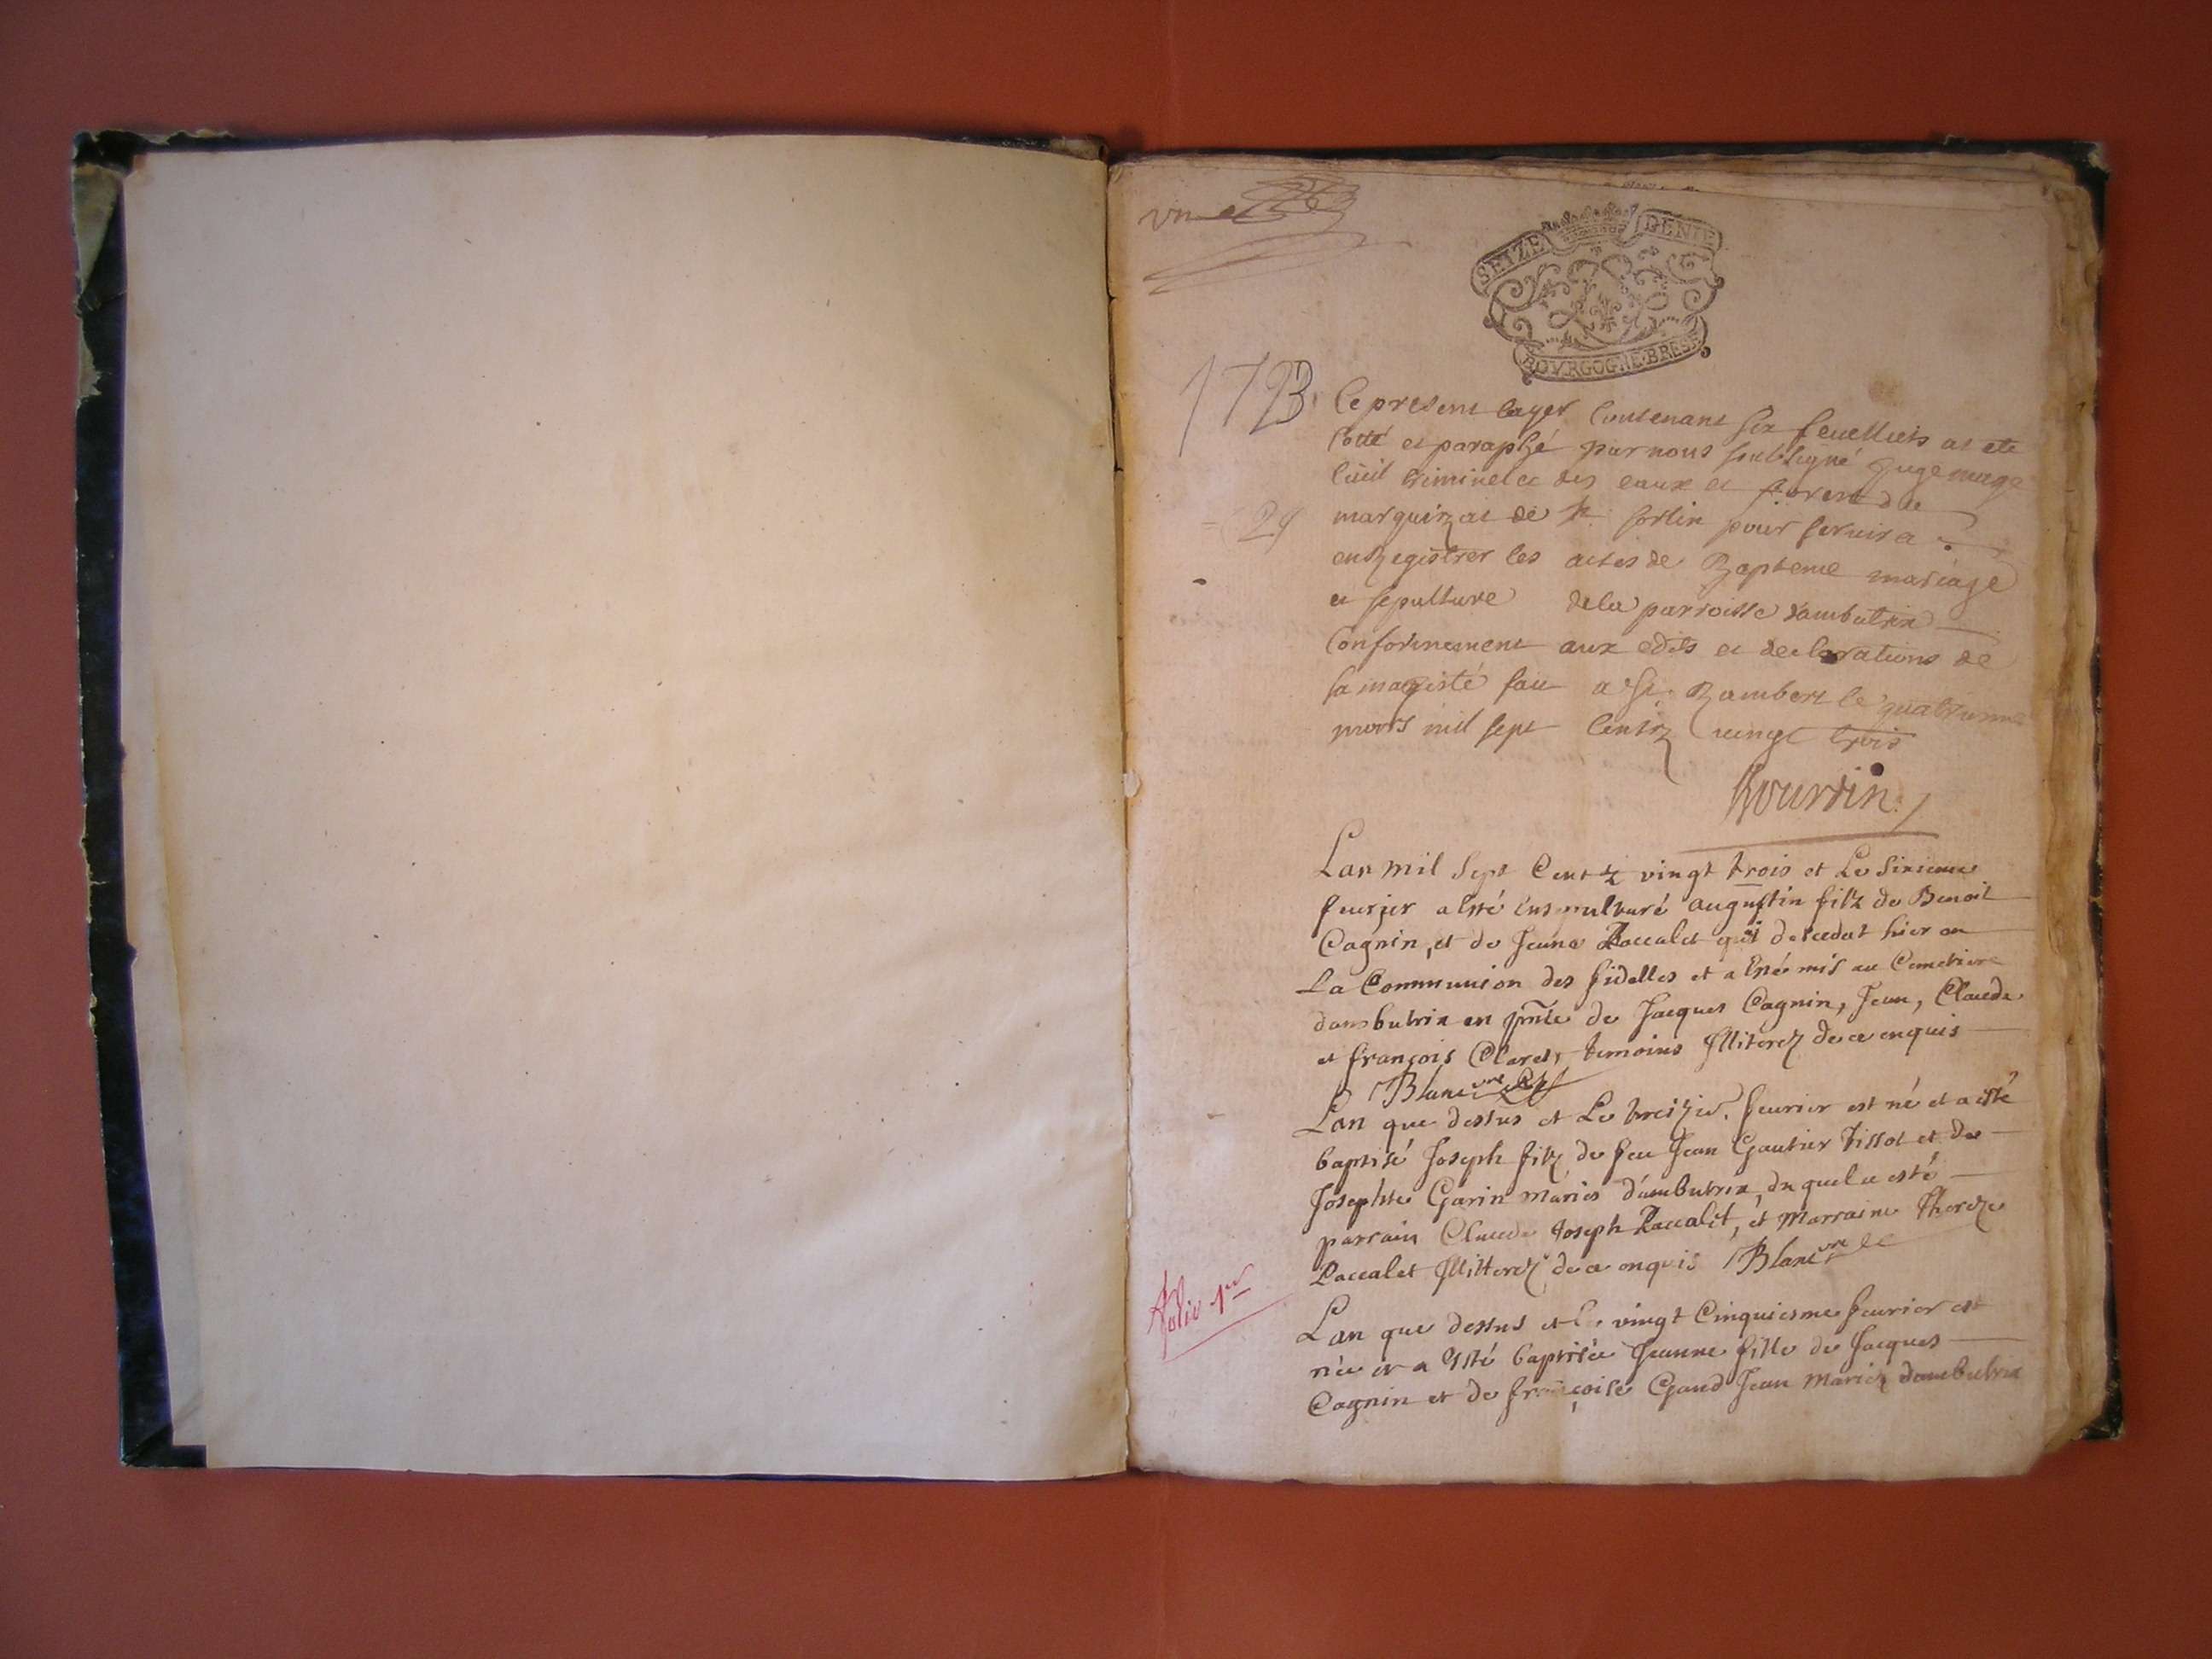 vn
SEIZE DENIE
BOVRGOGNE·BRESSE
1723
Ce present cayer contenant six feuellets at ete
cotté et paraphé par nous soubsigné Juge mage
Ciuil criminel et des eaux et forest du
marquizat de st sorlin pour seruir a
29
enregistrer les actes de Bapteme mariage
et sepulture de la parroisse dambutrix
Conformement aux edits et declarations de
sa magesté fait a st Rambert le quatrieme
mars mil sept centz vingt trois
Lan mil sept Centz vingt trois et Le sixieme
feurier a esté augustin filz de Benoit
Cagnin, et de Jeane Paccalet qui deceda hier en
La Communion des fidelles et a esté mis au Cemetiere
dambutrix en pnce de Jacques Cagnin, Jean, Claude
et françois Claret, temoins Illiterez de ce enquis
Blanc vre
Lan que dessus et Le treizie. feurier est né et a esté
baptisé Joseph filz de feu Jean Gautier Tissot et de
Josephte Garin mariés d'ambutrix, duquel a esté
parrain Claude Joseph Paccalet, et Marraine Thereze
Paccalet Illitterez de ce enquis Blanc vre
folio 1er
Lan que dessus et le vingt Cinquiesme feurier est
née et a esté baptisée Jeanne fille de Jacques
Cagnin et de françoise Gand Jean mariez dambutrix